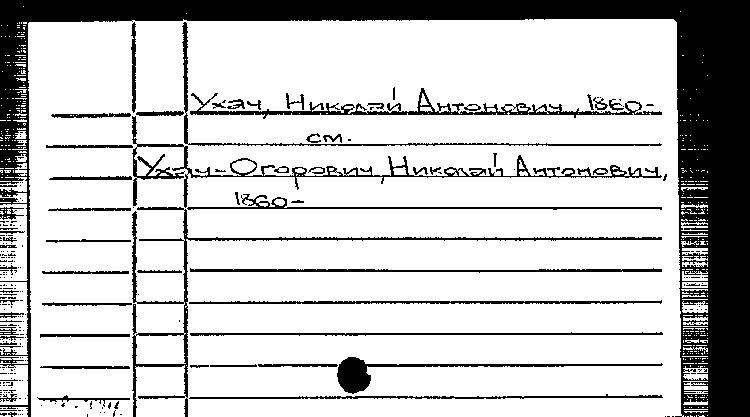 Ухач, Николай Антонович, 1860-
см.
Ухач-Огорович, Николай Антонович,
1860-